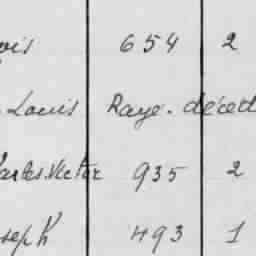 ouis 654 2
Louis Rayé. décéd
harles Victor 935 2
seph 493 1